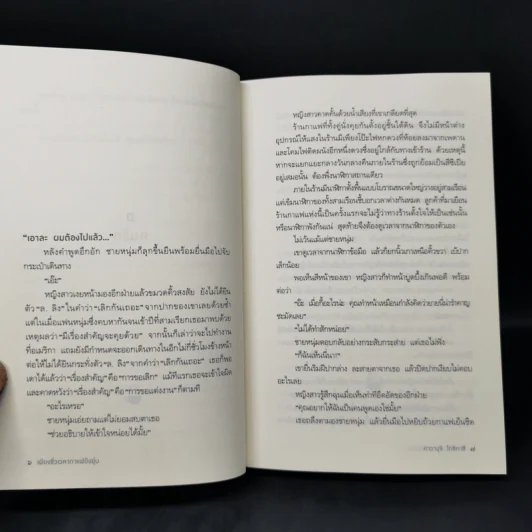 "เอาละ ผมต้องไปแล้ว..."
หลังคำพูดอึกอัก ชายหนุ่มก็ลุกขึ้นยืนพร้อมยื่นมือไปจับ
กระเป๋าเดินทาง
"เอ๊ะ"
หญิงสาวเงยหน้ามองอีกฝ่ายแล้วขมวดคิ้วสงสัย ยังไม่ได้ยิน
ตัว "ล. ลิง" ในคำว่า "เลิกกันเถอะ" จากปากของเขาเลยด้วยซ้ำ
แต่ในเมื่อแฟนหนุ่มซึ่งคบหากันจนเข้าปีที่สามเรียกเธอมาพบด้วย
เหตุผลว่า "มีเรื่องสำคัญจะคุยด้วย" จากนั้นก็เล่าว่าจะไปทำงาน
ที่อเมริกา แถมยังมีกำหนดจะออกเดินทางในอีกไม่กี่ชั่วโมงข้างหน้า
ต่อให้ไม่ได้ยินกระทั่งตัว "ล. ลิง" จากคำว่า "เลิกกันเถอะ" เธอก็พอ
เดาได้แล้วว่า "เรื่องสำคัญ" คือ "การขอเลิก" แม้ทีแรกเธอจะเข้าใจผิด
และคาดหวังว่า "เรื่องสำคัญ" คือ "การขอแต่งงาน" ก็ตามที
"อะไรเหรอ"
ชายหนุ่มเอ่ยถามแต่ไม่ยอมสบตาเธอ
"ช่วยอธิบายให้เข้าใจหน่อยได้มั้ย"
๖ เพียงชั่วเวลากาแฟยังอุ่น
หญิงสาวคาดคั้นด้วยน้ำเสียงที่เขาเกลียดที่สุด
ร้านกาแฟที่ทั้งคู่นั่งคุยกันตั้งอยู่ชั้นใต้ดิน จึงไม่มีหน้าต่าง
อุปกรณ์ให้แสงในร้านมีเพียงโป๊ะไฟหกดวงที่ห้อยลงมาจากเพดาน
และโคมไฟติดผนังอีกหนึ่งดวงซึ่งอยู่ใกล้กับทางเข้าร้าน ด้วยเหตุนี้
หากจะแยกแยะกลางวันกลางคืนภายในร้านซึ่งถูกย้อมเป็นสีซีเปีย
อยู่เสมอนั้น ต้องพึ่งนาฬิกาสถานเดียว
ภายในร้านมีนาฬิกาตั้งพื้นแบบโบราณขนาดใหญ่วางอยู่สามเรือน
แต่เข็มนาฬิกาของทั้งสามเรือนชี้บอกเวลาต่างกันหมด ลูกค้าที่มาเยือน
ร้านกาแฟแห่งนี้เป็นครั้งแรกจะไม่รู้ว่าทางร้านตั้งใจให้เป็นเช่นนั้น
หรือนาฬิกาพังกันแน่ สุดท้ายจึงต้องดูเวลาจากนาฬิกาของตัวเอง
ไม่เว้นแม้แต่ชายหนุ่ม
เขาดูเวลาจากนาฬิกาข้อมือ แล้วก็ยกนิ้วเกาเหนือคิ้วขวา เบ้ปาก
เล็กน้อย
พอเห็นสีหน้าของเขา หญิงสาวก็ทำหน้าบูดบึ้งเกินพอดี พร้อม
ต่อว่า
"อ๊ะ เมื่อกี้อะไรน่ะ คุณทำหน้าเหมือนกำลังคิดว่ายายนี่น่ารำคาญ
ชะมัดเลย"
"ไม่ได้ทำสักหน่อย"
ชายหนุ่มตอบกลับอย่างกระสับกระส่าย แต่เธอไม่ฟัง
"ก็ฉันเห็นนี่นา!"
เขายืนริมฝีปากล่าง ละสายตาจากเธอ แล้วปิดปากเงียบไม่ตอบ
อะไรเลย
หญิงสาวรู้สึกฉุนเมื่อเห็นท่าทีอึดอัดของอีกฝ่าย
"คุณอยากให้ฉันเป็นคนพูดเองใช่มั้ย"
เธอถลึงตามองชายหนุ่ม แล้วยื่นมือไปหยิบถ้วยกาแฟเย็นชืด
คาวางุจิ โทชิคาซึ ๗